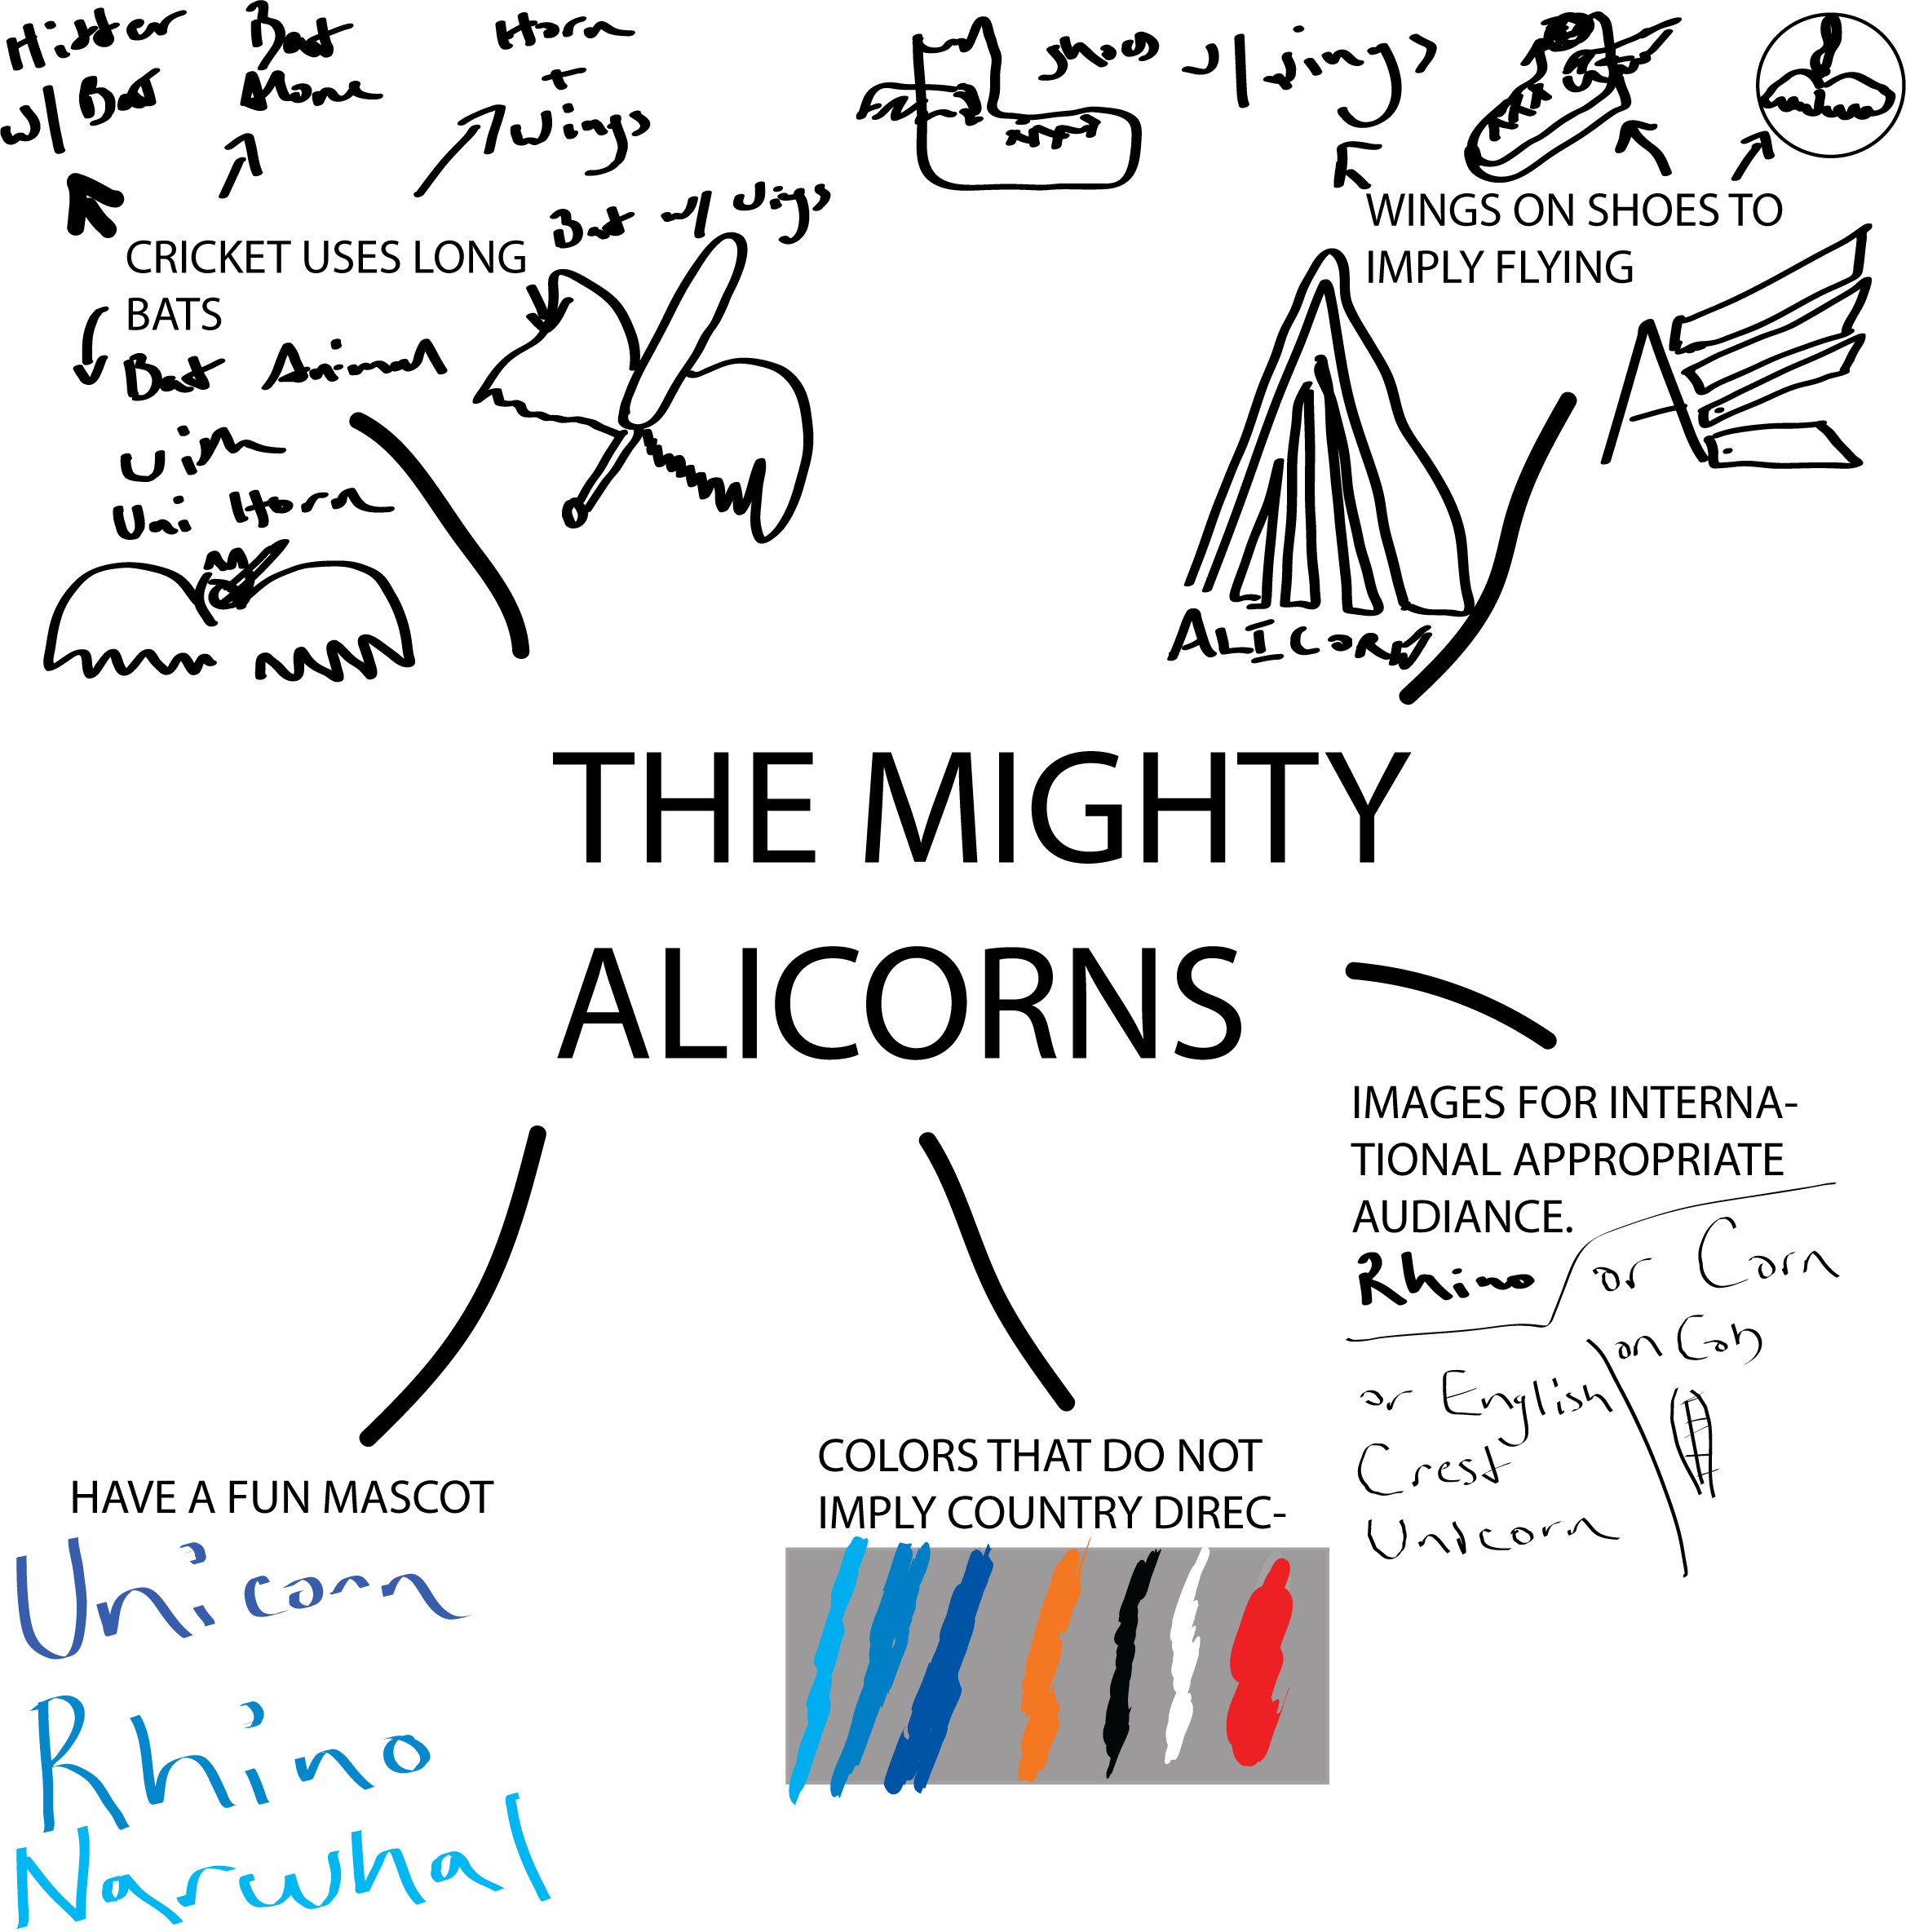 Hitter
w/ Bat
Bat
Alone
Horn
+
wings
shoes w/ wings
Bat w/ wings
CRICKET USES LONG
BATS
Bat Animal
with
Uni Horn
WINGS ON SHOES TO
IMPLY FLYING
A
ALICORN
THE MIGHTY
ALICORNS
IMAGES FOR INTERNA-
TIONAL APPROPRIATE
AUDIANCE.
Rhino or Corn
on Cob
or English
Crest
Unicorn
HAVE A FUN MASCOT
Unicorn
Rhino
Narwhal
COLORS THAT DO NOT
IMPLY COUNTRY DIREC-